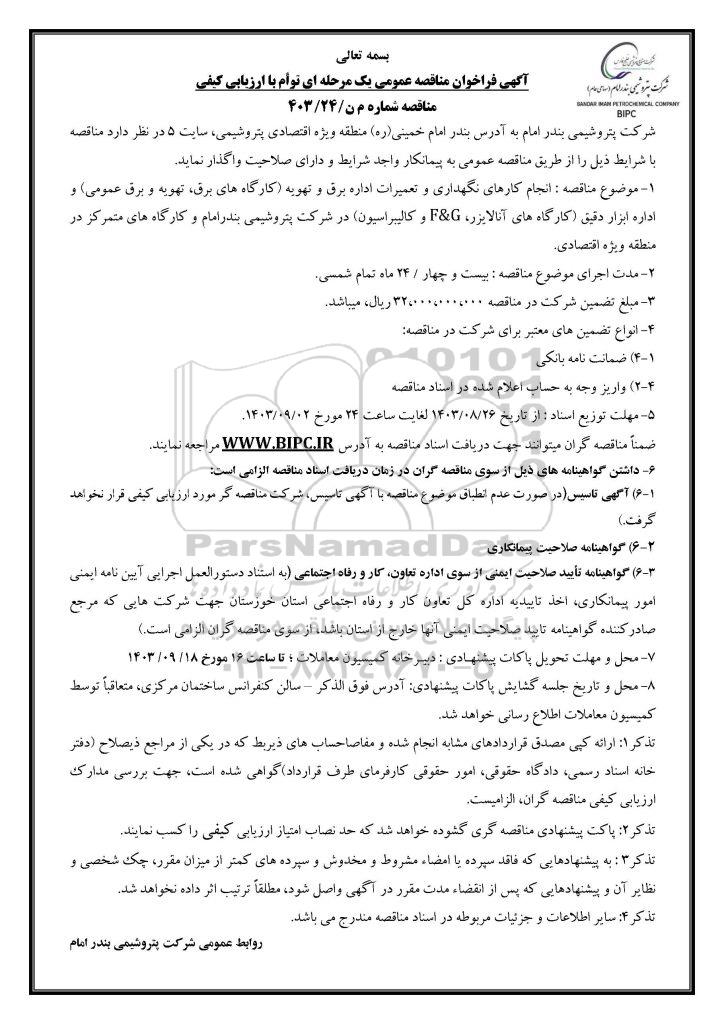 بسمه تعالی
آگهی فراخوان مناقصه عمومی یک مرحله ای توأم با ارزیابی کیفی
مناقصه شماره م ن/۴۰۳/۲۴
شرکت پتروشیمی بندر امام (سهامی عام)
BANDAR IMAM PETROCHEMICAL COMPANY
BIPC
شرکت پتروشیمی بندر امام به آدرس بندر امام خمینی(ره) منطقه ویژه اقتصادی پتروشیمی، سایت ۵ در نظر دارد مناقصه
با شرایط ذیل را از طریق مناقصه عمومی به پیمانکار واجد شرایط و دارای صلاحیت واگذار نماید.
۱- موضوع مناقصه : انجام کارهای نگهداری و تعمیرات اداره برق و تهویه (کارگاه های برق، تهویه و برق عمومی) و
اداره ابزار دقیق (کارگاه های آنالایزر، F&G و کالیبراسیون) در شرکت پتروشیمی بندرامام و کارگاه های متمرکز در
منطقه ویژه اقتصادی.
۲- مدت اجرای موضوع مناقصه : بیست و چهار / ۲۴ ماه تمام شمسی.
۳- مبلغ تضمین شرکت در مناقصه ۳۲،۰۰۰،۰۰۰،۰۰۰ ریال، میباشد.
۴- انواع تضمین های معتبر برای شرکت در مناقصه:
۴-۱) ضمانت نامه بانکی
۴-۲) واریز وجه به حساب اعلام شده در اسناد مناقصه
۵- مهلت توزیع اسناد : از تاریخ ۱۴۰۳/۰۸/۲۶ لغایت ساعت ۲۴ مورخ ۱۴۰۳/۰۹/۰۲.
ضمناً مناقصه گران میتوانند جهت دریافت اسناد مناقصه به آدرس WWW.BIPC.IR مراجعه نمایند.
۶- داشتن گواهینامه های ذیل از سوی مناقصه گران در زمان دریافت اسناد مناقصه الزامی است:
۶-۱) آگهی تاسیس(در صورت عدم انطباق موضوع مناقصه با آگهی تاسیس، شرکت مناقصه گر مورد ارزیابی کیفی قرار نخواهد
گرفت.)
۶-۲) گواهینامه صلاحیت پیمانکاری
۶-۳) گواهینامه تأیید صلاحیت ایمنی از سوی اداره تعاون، کار و رفاه اجتماعی (به استناد دستورالعمل اجرایی آیین نامه ایمنی
امور پیمانکاری، اخذ تاییدیه اداره کل تعاون کار و رفاه اجتماعی استان خوزستان جهت شرکت هایی که مرجع
صادرکننده گواهینامه تایید صلاحیت ایمنی آنها خارج از استان باشد، از سوی مناقصه گران الزامی است.)
۷- محل و مهلت تحویل پاکات پیشنهادی : دبیرخانه کمیسیون معاملات ؛ تا ساعت ۱۶ مورخ ۱۸/ ۰۹/ ۱۴۰۳
۸- محل و تاریخ جلسه گشایش پاکات پیشنهادی: آدرس فوق الذکر – سالن کنفرانس ساختمان مرکزی، متعاقباً توسط
کمیسیون معاملات اطلاع رسانی خواهد شد.
تذکر۱: ارائه کپی مصدق قراردادهای مشابه انجام شده و مفاصاحساب های ذیربط که در یکی از مراجع ذیصلاح (دفتر
خانه اسناد رسمی، دادگاه حقوقی، امور حقوقی کارفرمای طرف قرارداد)گواهی شده است، جهت بررسی مدارک
ارزیابی کیفی مناقصه گران، الزامیست.
تذکر۲: پاکت پیشنهادی مناقصه گری گشوده خواهد شد که حد نصاب امتیاز ارزیابی کیفی را کسب نمایند.
تذکر۳ : به پیشنهادهایی که فاقد سپرده یا امضاء مشروط و مخدوش و سپرده های کمتر از میزان مقرر، چک شخصی و
نظایر آن و پیشنهادهایی که پس از انقضاء مدت مقرر در آگهی واصل شود، مطلقاً ترتیب اثر داده نخواهد شد.
تذکر۴: سایر اطلاعات و جزئیات مربوطه در اسناد مناقصه مندرج می باشد.
روابط عمومی شرکت پتروشیمی بندر امام
ParsNamadData